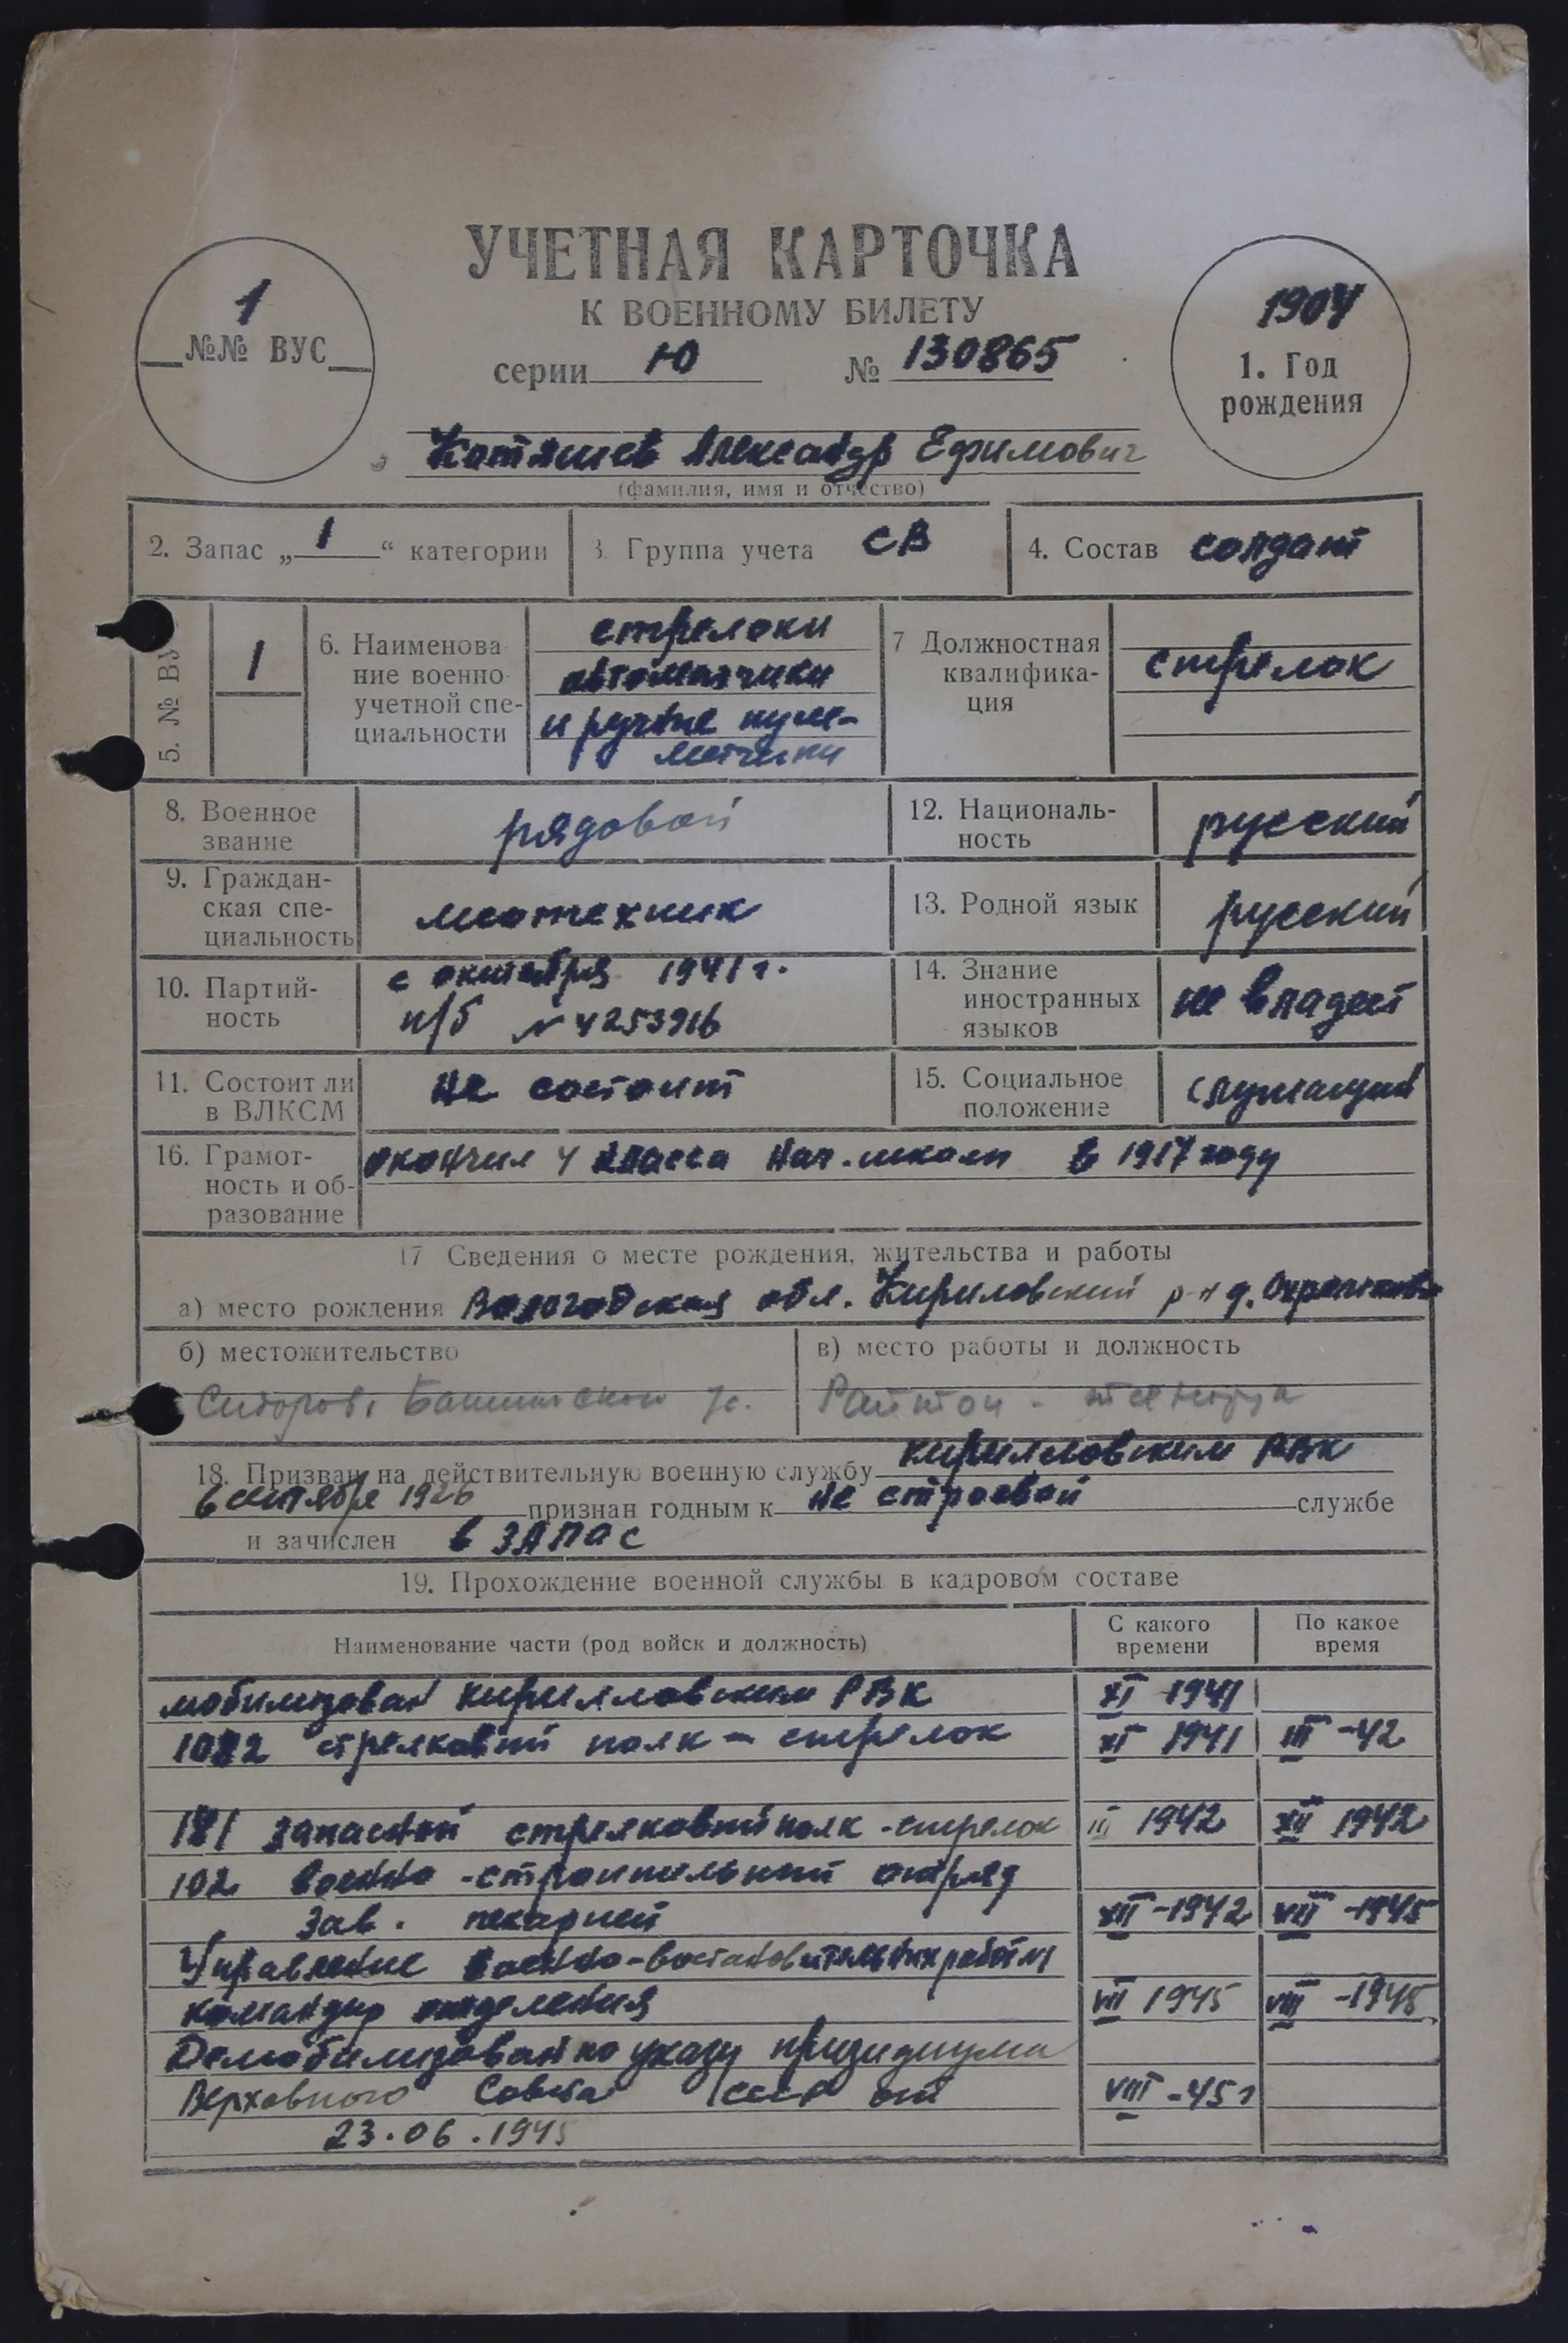 УЧЕТНАЯ КАРТОЧКА
К ВОЕННОМУ БИЛЕТУ
1
№№ ВУС
серии Ю № 130865
1904
1. Год
рождения
Александр Ефимович
(фамилия, имя и отчество)
2. Запас „1“ категории
3. Группа учета СВ
4. Состав солдат
5. № ВУ
1
6. Наименова
ние военно
учетной спе-
циальности
стрелоки
автоматчики
и ручные пуле-
метчики
7 Должностная
квалифика-
ция
стрелок
8. Военное
звание
рядовой
12. Националь-
ность
русский
9. Граждан-
ская спе-
циальность
13. Родной язык
русский
10. Партий-
ность
с октября 1941 г.
п/б № 4253916
14. Знание
иностранных
языков
не владеет
11. Состоит ли
в ВЛКСМ
не состоит
15. Социальное
положение
служащий
16. Грамот-
ность и об-
разование
окончил 4 класса нач. школы в 1917 году
17 Сведения о месте рождения, жительства и работы
а) место рождения Вологодская обл. Кириловский р-н д.
б) местожительство
в) место работы и должность
18. Призван на действительную военную службу Кирилловским РВК
6 сентября 1926 признан годным к не строевой службе
и зачислен в запас
19. Прохождение военной службы в кадровом составе
Наименование части (род войск и должность)
С какого
времени
По какое
время
мобилизован Кирилловским РВК XI 1941
1082 стрелковый полк - стрелок XI 1941 III -42
181 запасной стрелковый полк - стрелок III 1942 XII 1942
102 военно-строительный отряд
зав. пекарней XII -1942 VIII -1945
Управление военно-востановительных работы
командир отделения VII 1945 VIII -1945
Демобилизован по указу призидиума
Верховного Совета СССР от VIII -45 г
23.06.1945